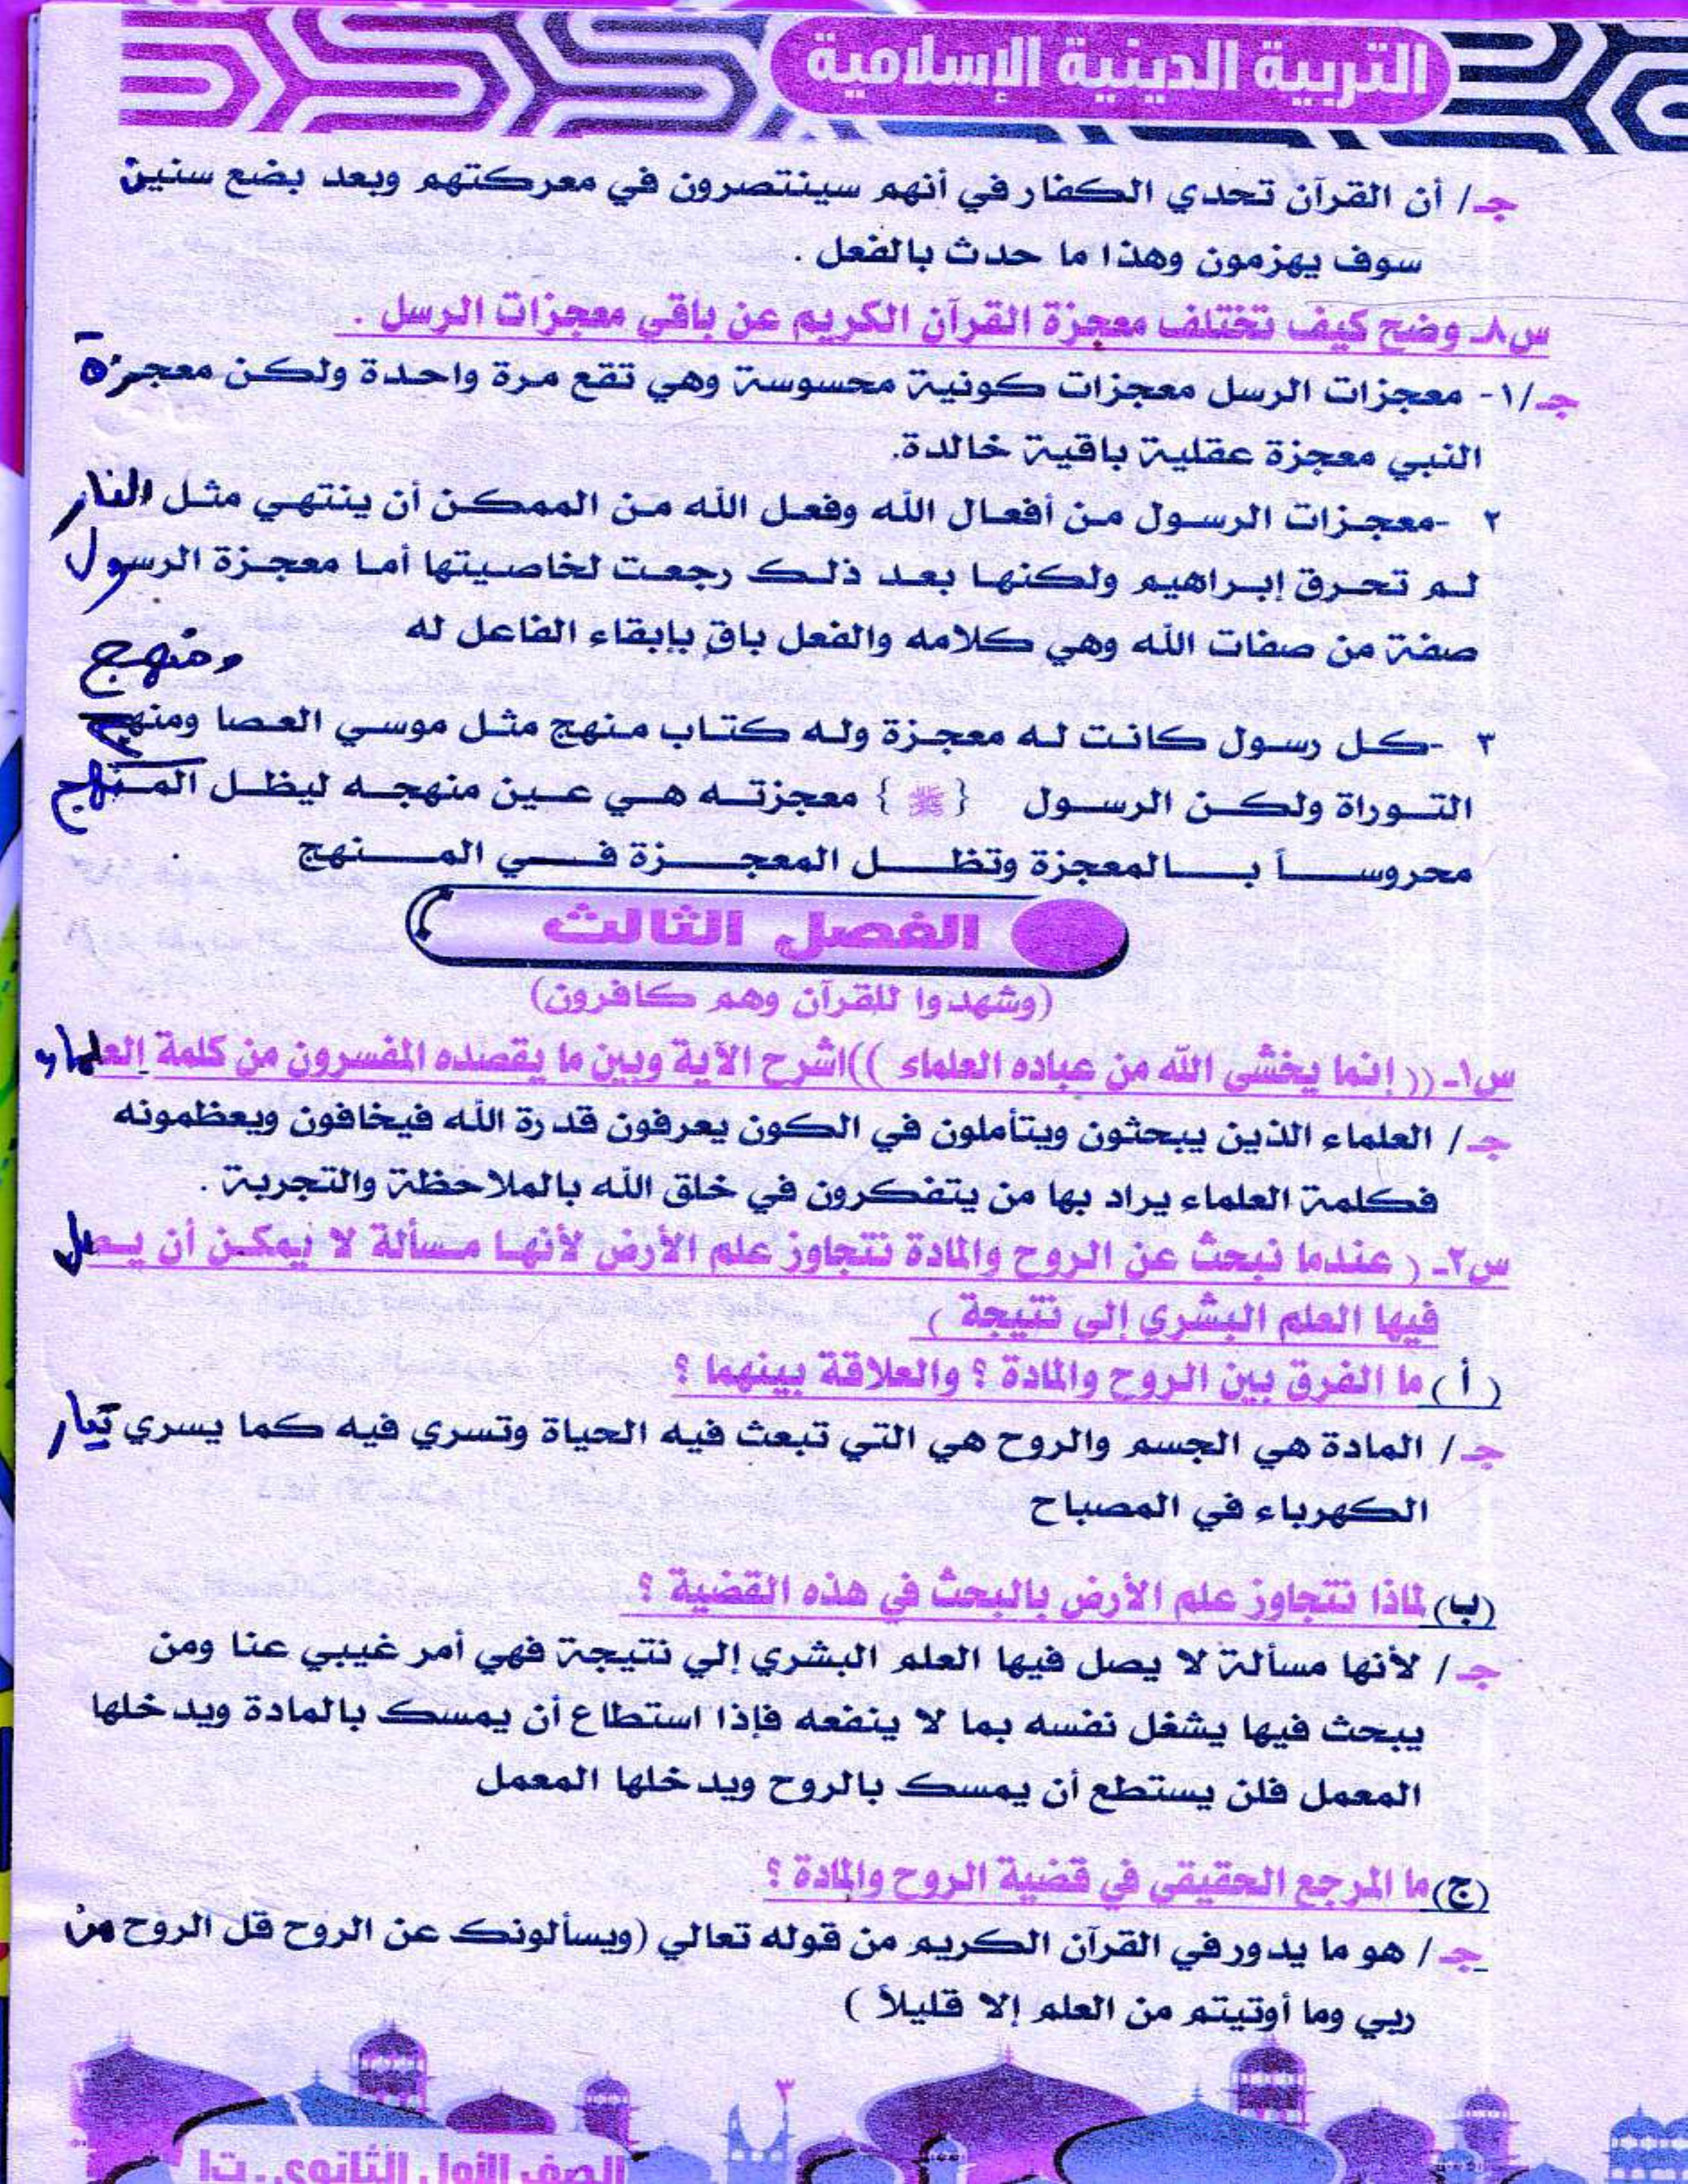 التربية الدينية الإسلامية
جـ/ أن القرآن تحدي الكفار في أنهم سينتصرون في معركتهم وبعد بضع سنين
سوف يهزمون وهذا ما حدث بالفعل .
س٨ـ وضح كيف تختلف معجزة القرآن الكريم عن باقي معجزات الرسل .
جـ/١- معجزات الرسل معجزات كونية محسوسة وهي تقع مرة واحدة ولكن معجزة
النبي معجزة عقلية باقية خالدة.
٢ -معجزات الرسول من أفعال الله وفعل الله من الممكن أن ينتهي مثل النار
لم تحرق إبراهيم ولكنها بعد ذلك رجعت لخاصيتها أما معجزة الرسول
صفة من صفات الله وهي كلامه والفعل باق بإبقاء الفاعل له
ومنهج
٣ -كل رسول كانت له معجزة وله كتاب منهج مثل موسي العصا ومنهج
التوراة ولكن الرسول { ﷺ } معجزته هي عين منهجه ليظل المنهج
محروساً بالمعجزة وتظل المعجزة في المنهج
الفصل الثالث
(وشهدوا للقرآن وهم كافرون)
س١ـ (( إنما يخشى الله من عباده العلماء ))اشرح الآية وبين ما يقصده المفسرون من كلمة العلماء
جـ/ العلماء الذين يبحثون ويتأملون في الكون يعرفون قدرة الله فيخافون ويعظمونه
فكلمة العلماء يراد بها من يتفكرون في خلق الله بالملاحظة والتجربة .
س٢ـ ( عندما نبحث عن الروح والمادة نتجاوز علم الأرض لأنها مسألة لا يمكن أن يصل
فيها العلم البشري إلي نتيجة )
( أ ) ما الفرق بين الروح والمادة ؟ والعلاقة بينهما ؟
جـ/ المادة هي الجسم والروح هي التي تبعث فيه الحياة وتسري فيه كما يسري تيار
الكهرباء في المصباح
(ب) لماذا نتجاوز علم الأرض بالبحث في هذه القضية ؟
جـ/ لأنها مسألة لا يصل فيها العلم البشري إلي نتيجة فهي أمر غيبي عنا ومن
يبحث فيها يشغل نفسه بما لا ينفعه فإذا استطاع أن يمسك بالمادة ويدخلها
المعمل فلن يستطع أن يمسك بالروح ويدخلها المعمل
(ج) ما المرجع الحقيقي في قضية الروح والمادة ؟
جـ/ هو ما يدور في القرآن الكريم من قوله تعالي (ويسألونك عن الروح قل الروح من
ربي وما أوتيتم من العلم إلا قليلاً )
٣
الصف الأول الثانوي. ت١